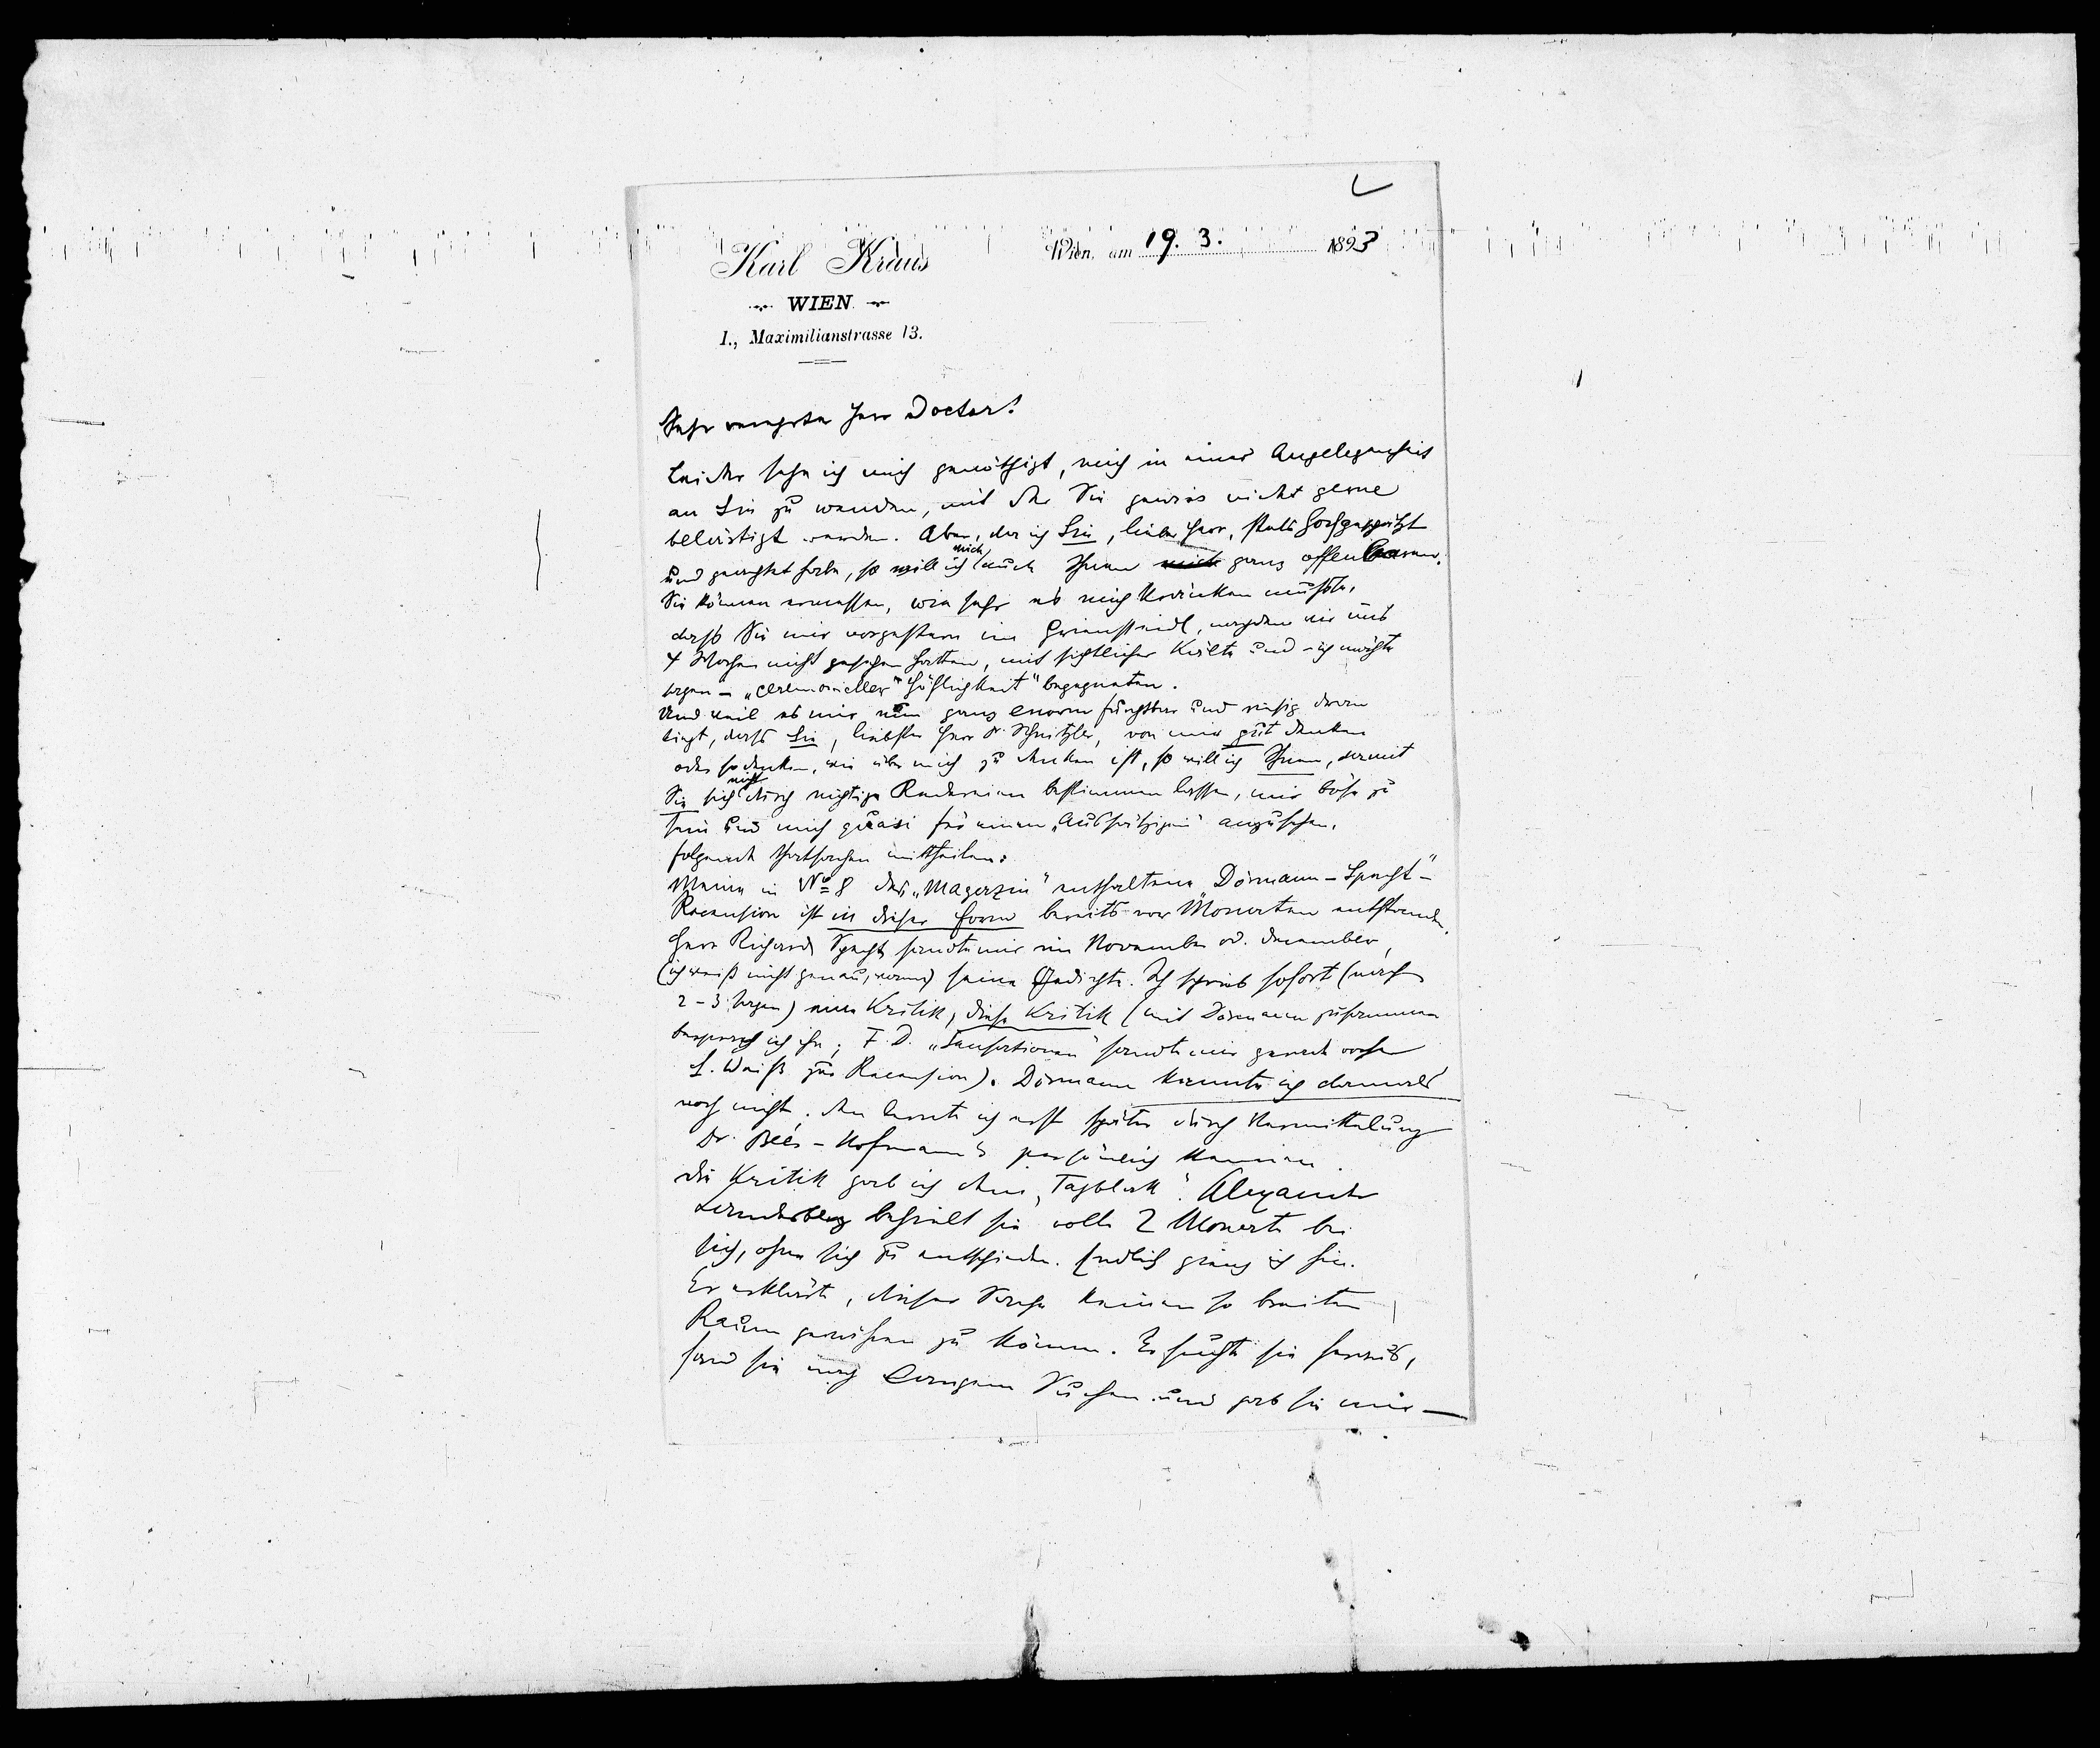 Karl Kraus
WIEN
I., Maximilianstrasse 13.
Wien, am 19. 3. 1893
Sehr verehrter Herr Doctor!
Leider sehe ich mich genöthigt, mich in einer Angelegenheit
an Sie zu wenden, mit der Sie gewiss nicht gerne
belästigt werden. Aber, der ich Sie, lieber Herr, stets hochgeschätzt
und geachtet habe, so will ich mich auch Ihnen mich ganz offenbaren.
Sie können ermessen, wie sehr es mich kränken mußte,
dass Sie mir vorgestern im Griensteidl, nachdem wir uns
4 Wochen nicht gesehen hatten, mit sichtlicher Kälte und – ich möchte
sagen – „ceremonieller" Höflichkeit" begegneten.
Und weil es mir nun ganz enorm furchtbar und riesig daran
liegt, dass Sie, liebster Herr Dr. Schnitzler, von mir gut denken
oder so denken, wie über mich zu denken ist, so will ich Ihnen, damit
Sie sich nicht durch nichtige Redereien bestimmen lassen, mir böse zu
sein und mich quasi für einen „Aussätzigen" anzusehen,
folgende Thatsachen mittheilen:
Meine in No 8 des „Magazin" enthaltene „Dörmann – Specht" –
Recension ist in dieser Form bereits vor Monaten entstanden.
Herr Richard Specht sandte mir im November od. December,
(ich weiß nicht genau, wann) seine Gedichte. Ich schrieb sofort (nach
2 – 3 Tagen) eine Kritik, diese Kritik (mit Dörmann zusammen
besprach ich ihn; F. D. „Sensationen" sandte mir gerade vorher
L. Weiß zur Recension). Dörmann kannte ich damals
noch nicht, den lernte ich erst später durch Vermittelung
Dr. Beer-Hofmann's persönlich kennen.
Die Kritik gab ich dem „Tagblatt". Alexander
Landesberg behielt sie volle 2 Monate bei
sich, ohne sich zu entscheiden. Endlich gieng ich hin.
Er erklärte, dieser Sache keinen so breiten
Raum gewähren zu können. Er suchte sie heraus,
fand sie nach langem Suchen und gab sie mir —